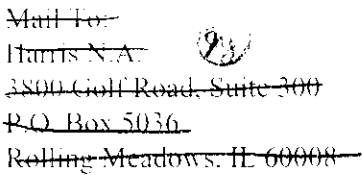 Mail To:
Harris N.A.
3800 Golf Road, Suite 300
P.O. Box 5036
Rolling Meadows, IL 60008